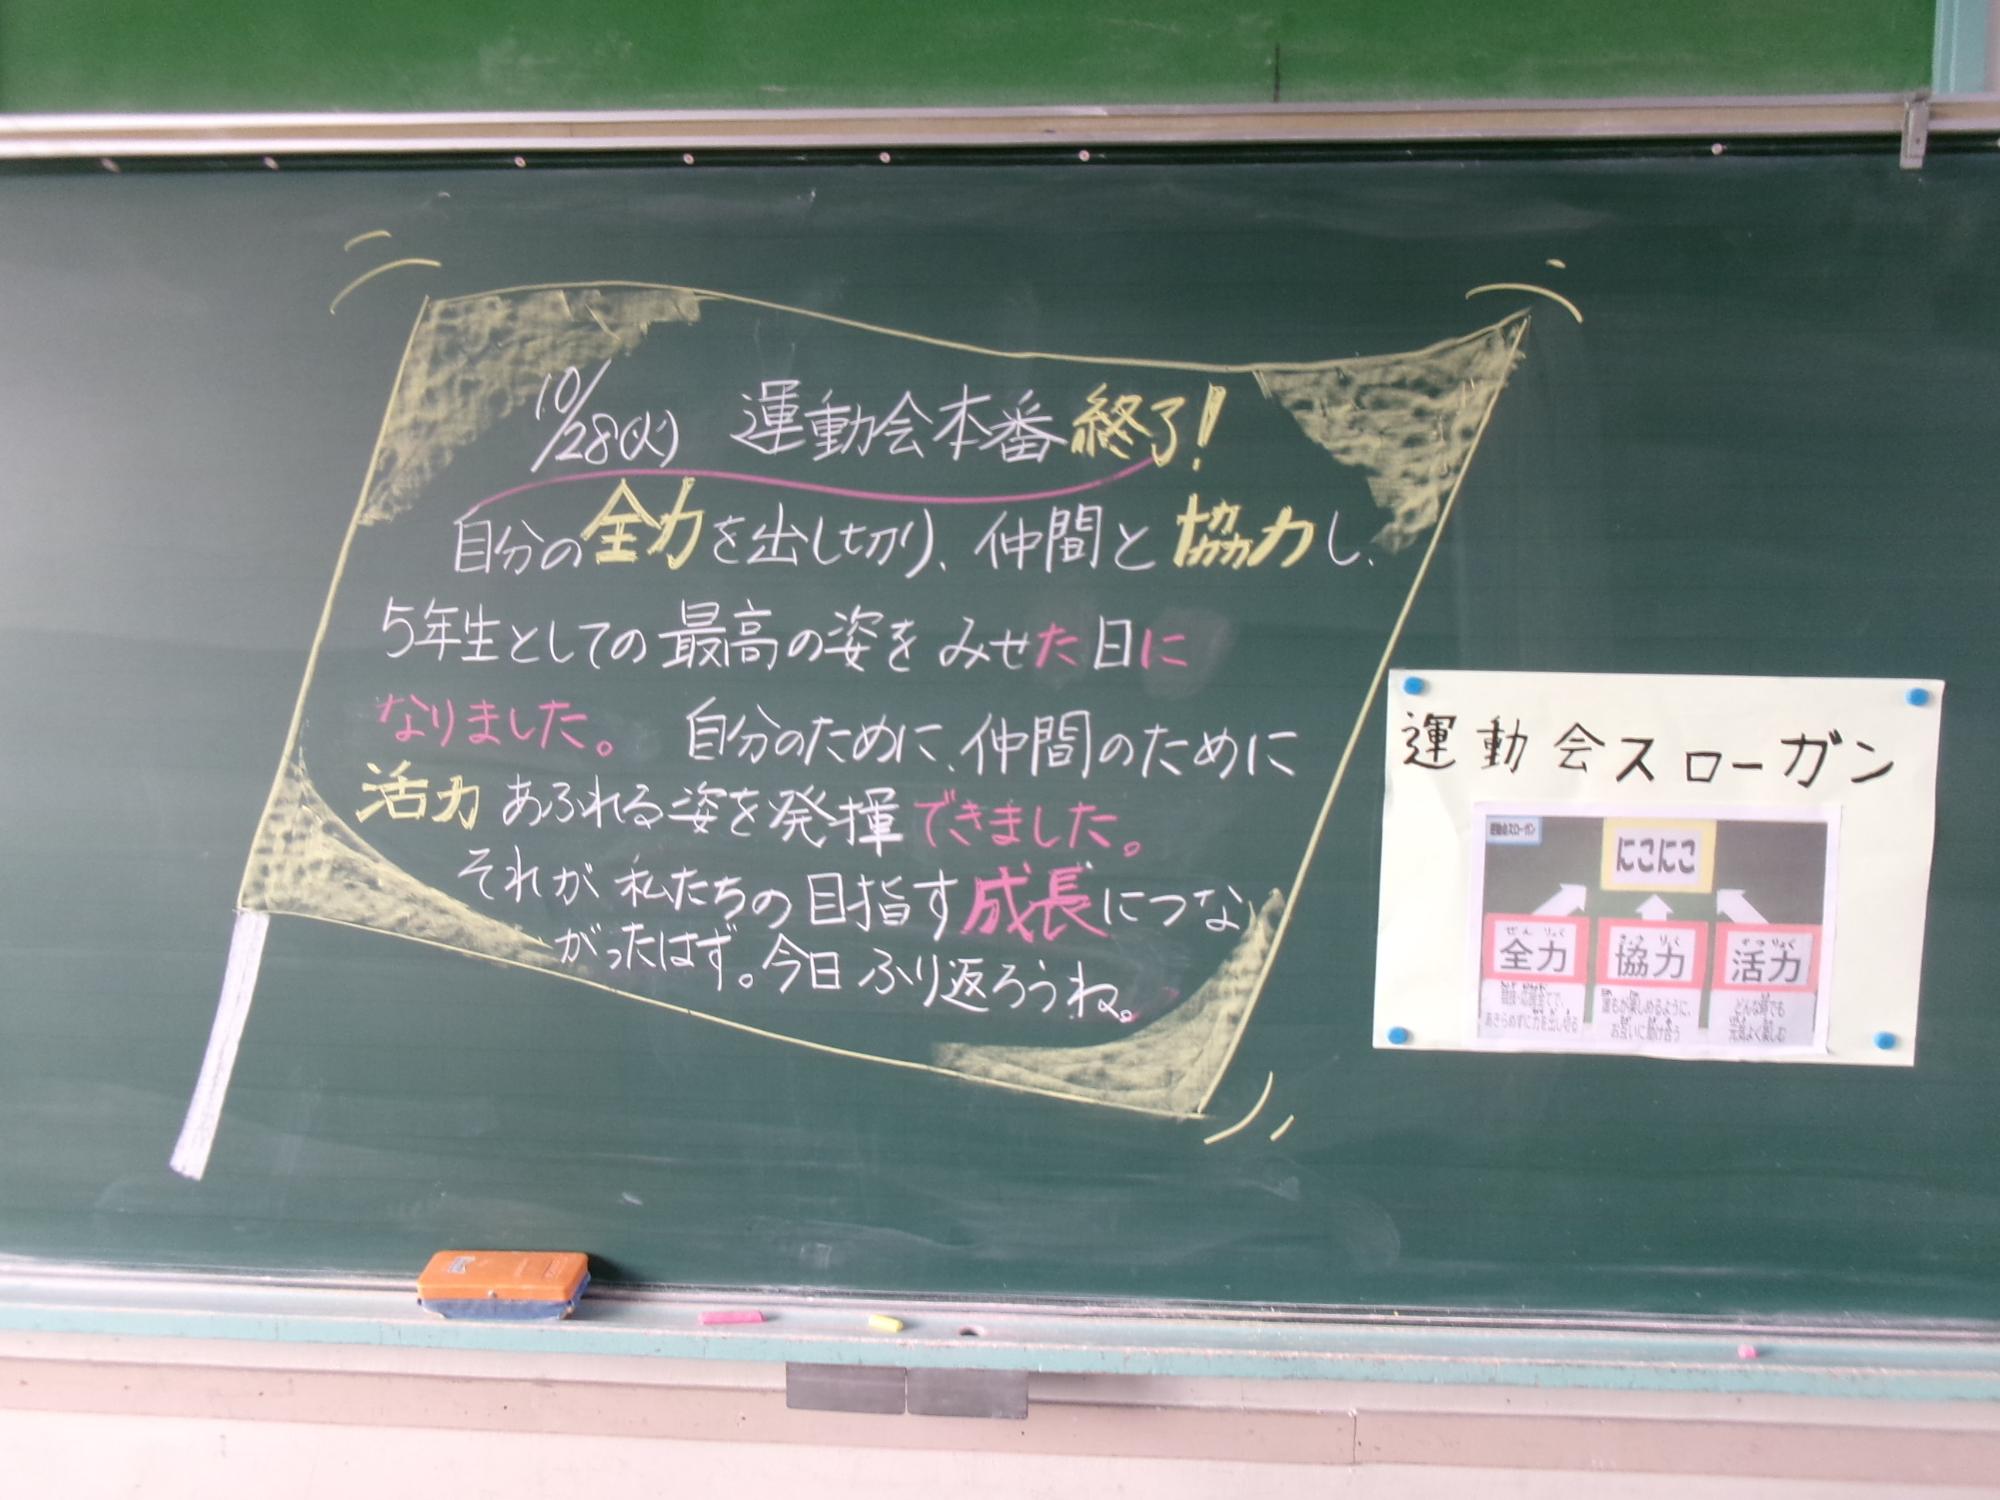 10/28(火) 運動会本番終了!
自分の全力を出し切り、仲間と協力し、
5年生としての最高の姿をみせた日に
なりました。 自分のために、仲間のために
活力あふれる姿を発揮できました。
それが私たちの目指す成長につな
がったはず。今日ふり返ろうね。
運動会スローガン
運動会スローガン
にこにこ
ぜんりょく
全力
きょうりょく
協力
かつりょく
活力
あきらめずに力を出し切る
誰もが楽しめるように、
お互いに助け合う
どんな時でも
元気よく楽しむ